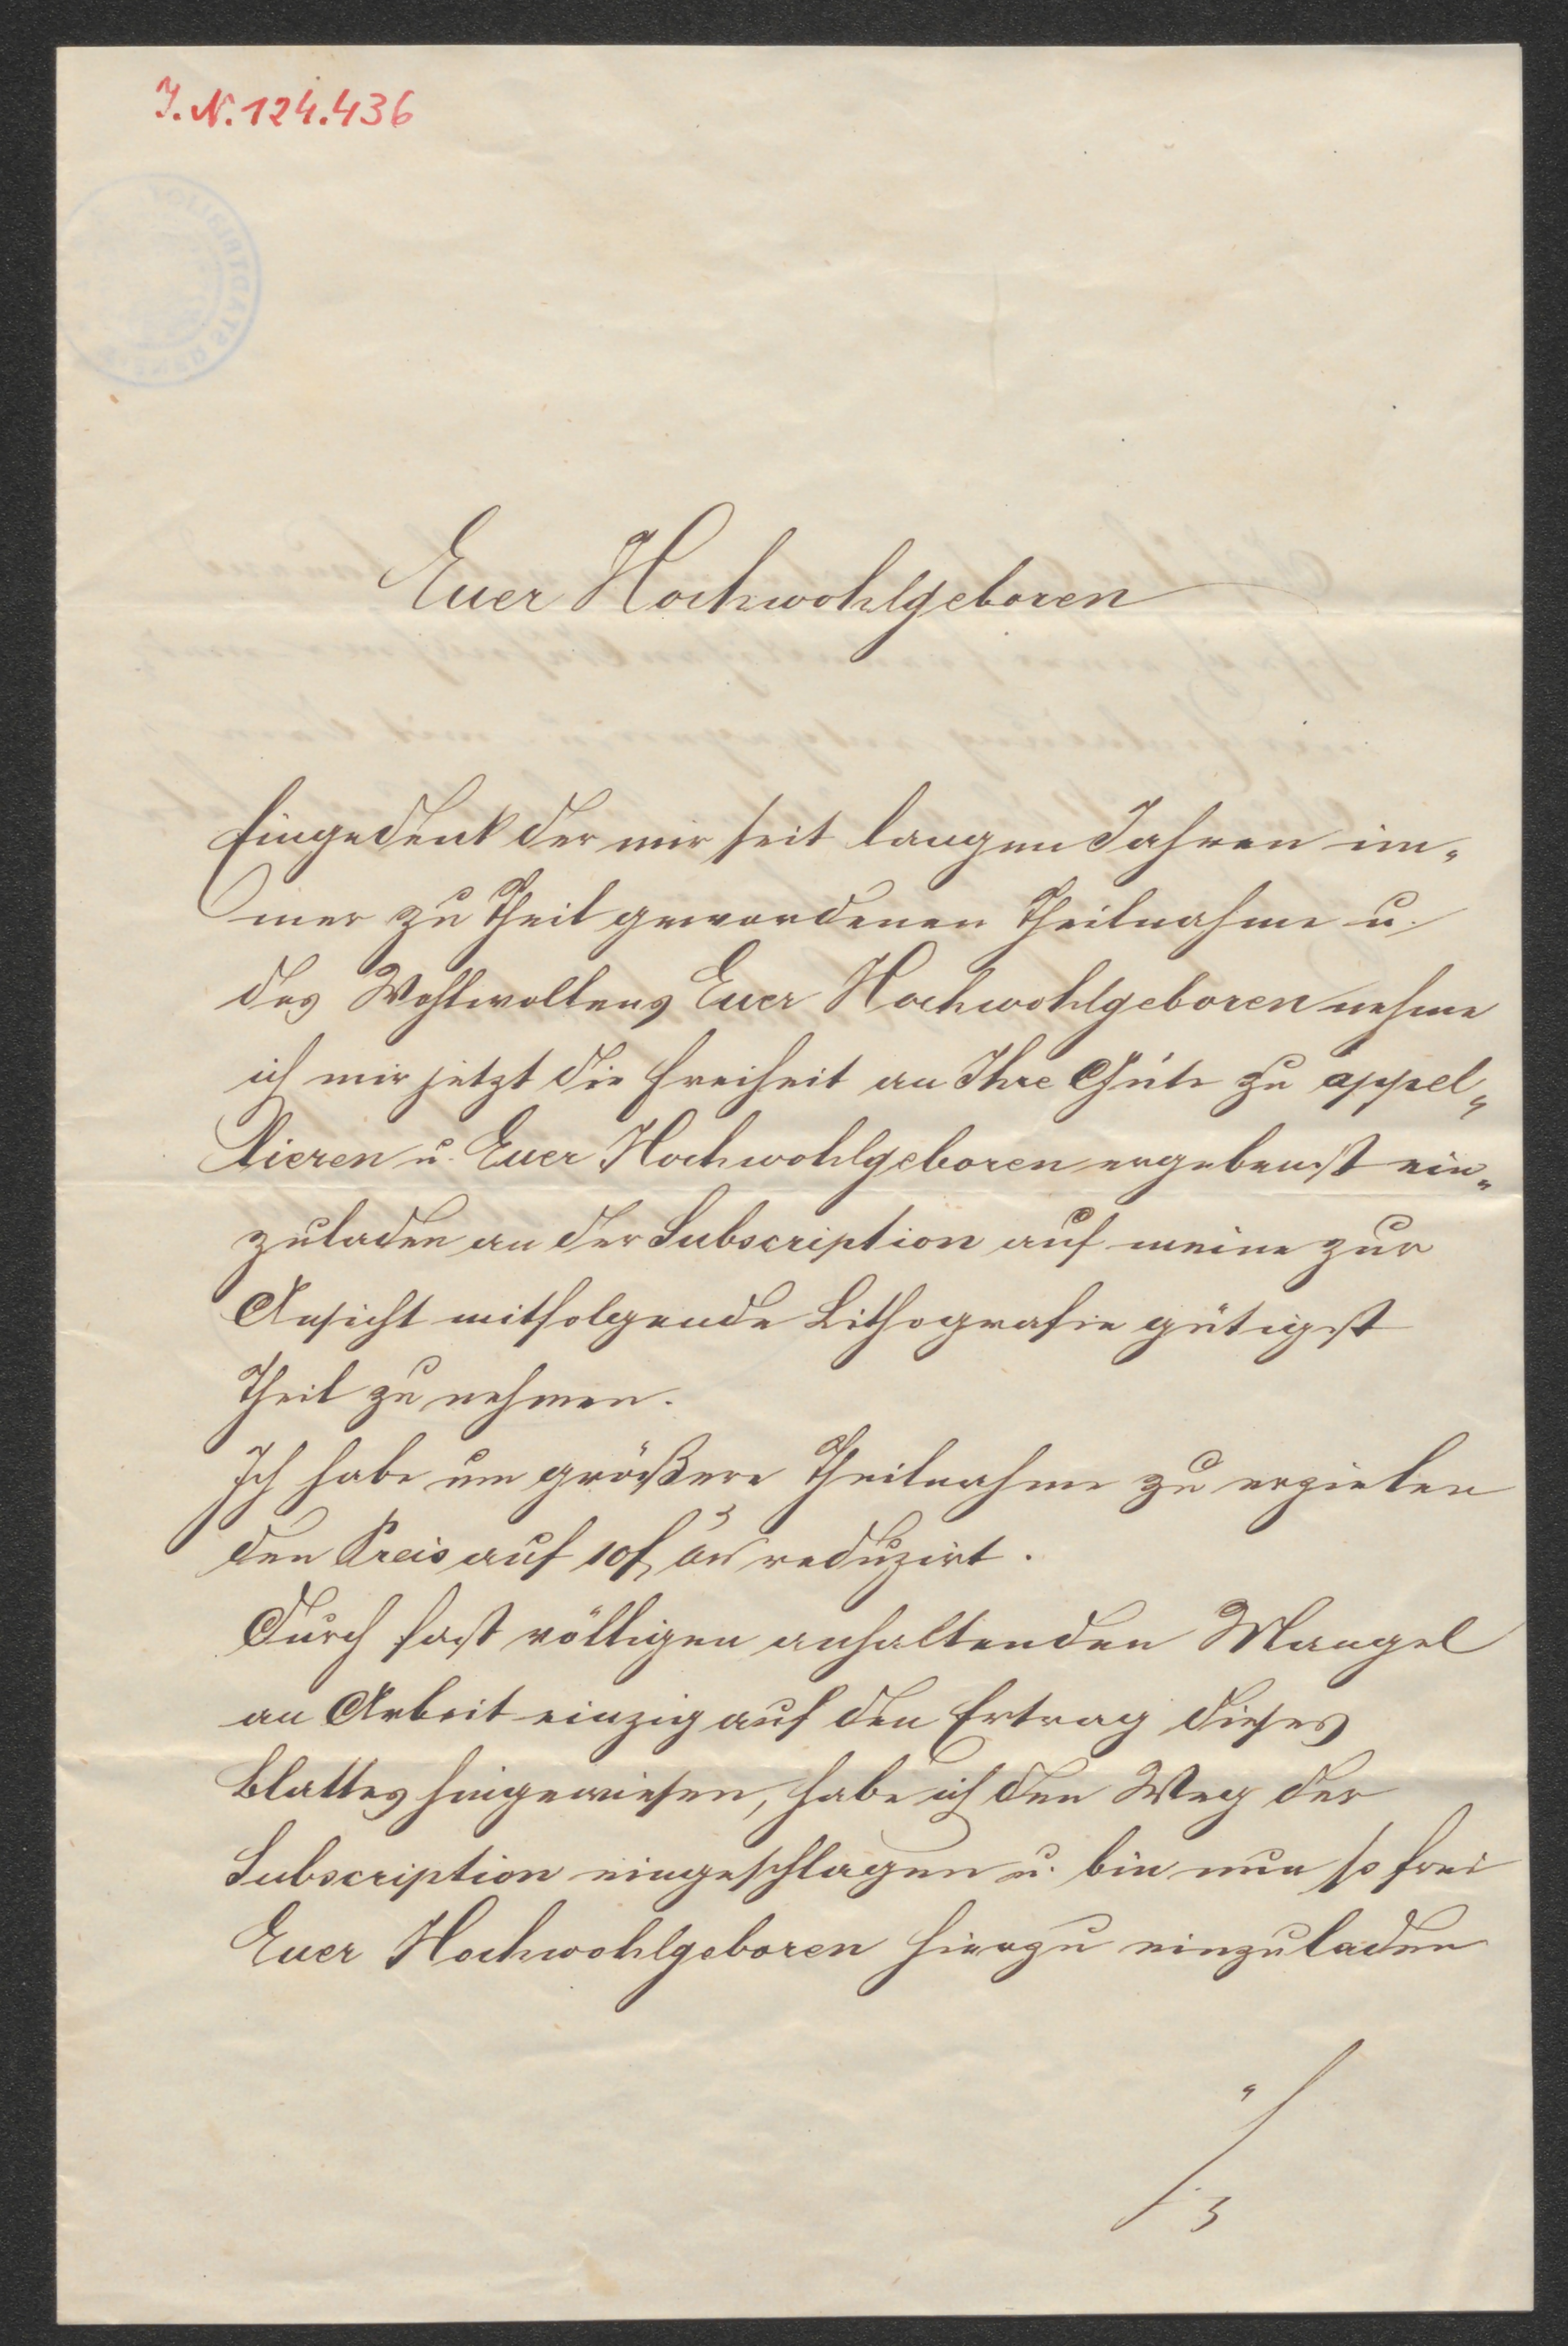 J. N. 124.436
Euer Hochwohlgeboren
Eingedenk der mir seit langen Jahren im„
mer zu Theil gewordenen Theilnahme u.
des Wohlwollens Euer Hochwohlgeboren nehme
ich mir jetzt die Freiheit an Ihre Güte zu appel„
lieren u. Euer Hochwohlgeboren ergebenst ein„
zuladen an der Subscription auf meine zur
Ansicht mitfolgende Lithografie gütigst
Theil zu nehmen.
Ich habe um größere Theilnahme zu erzielen
den Preis auf 10f reduzirt.
Durch fast völligen anhaltenden Mangel
an Arbeit einzig auf den Ertrag dieses
Blattes hingewiesen, habe ich den Weg der
Subscription eingeschlagen u. bin nun so frei
Euer Hochwohlgeboren hierzu einzuladen